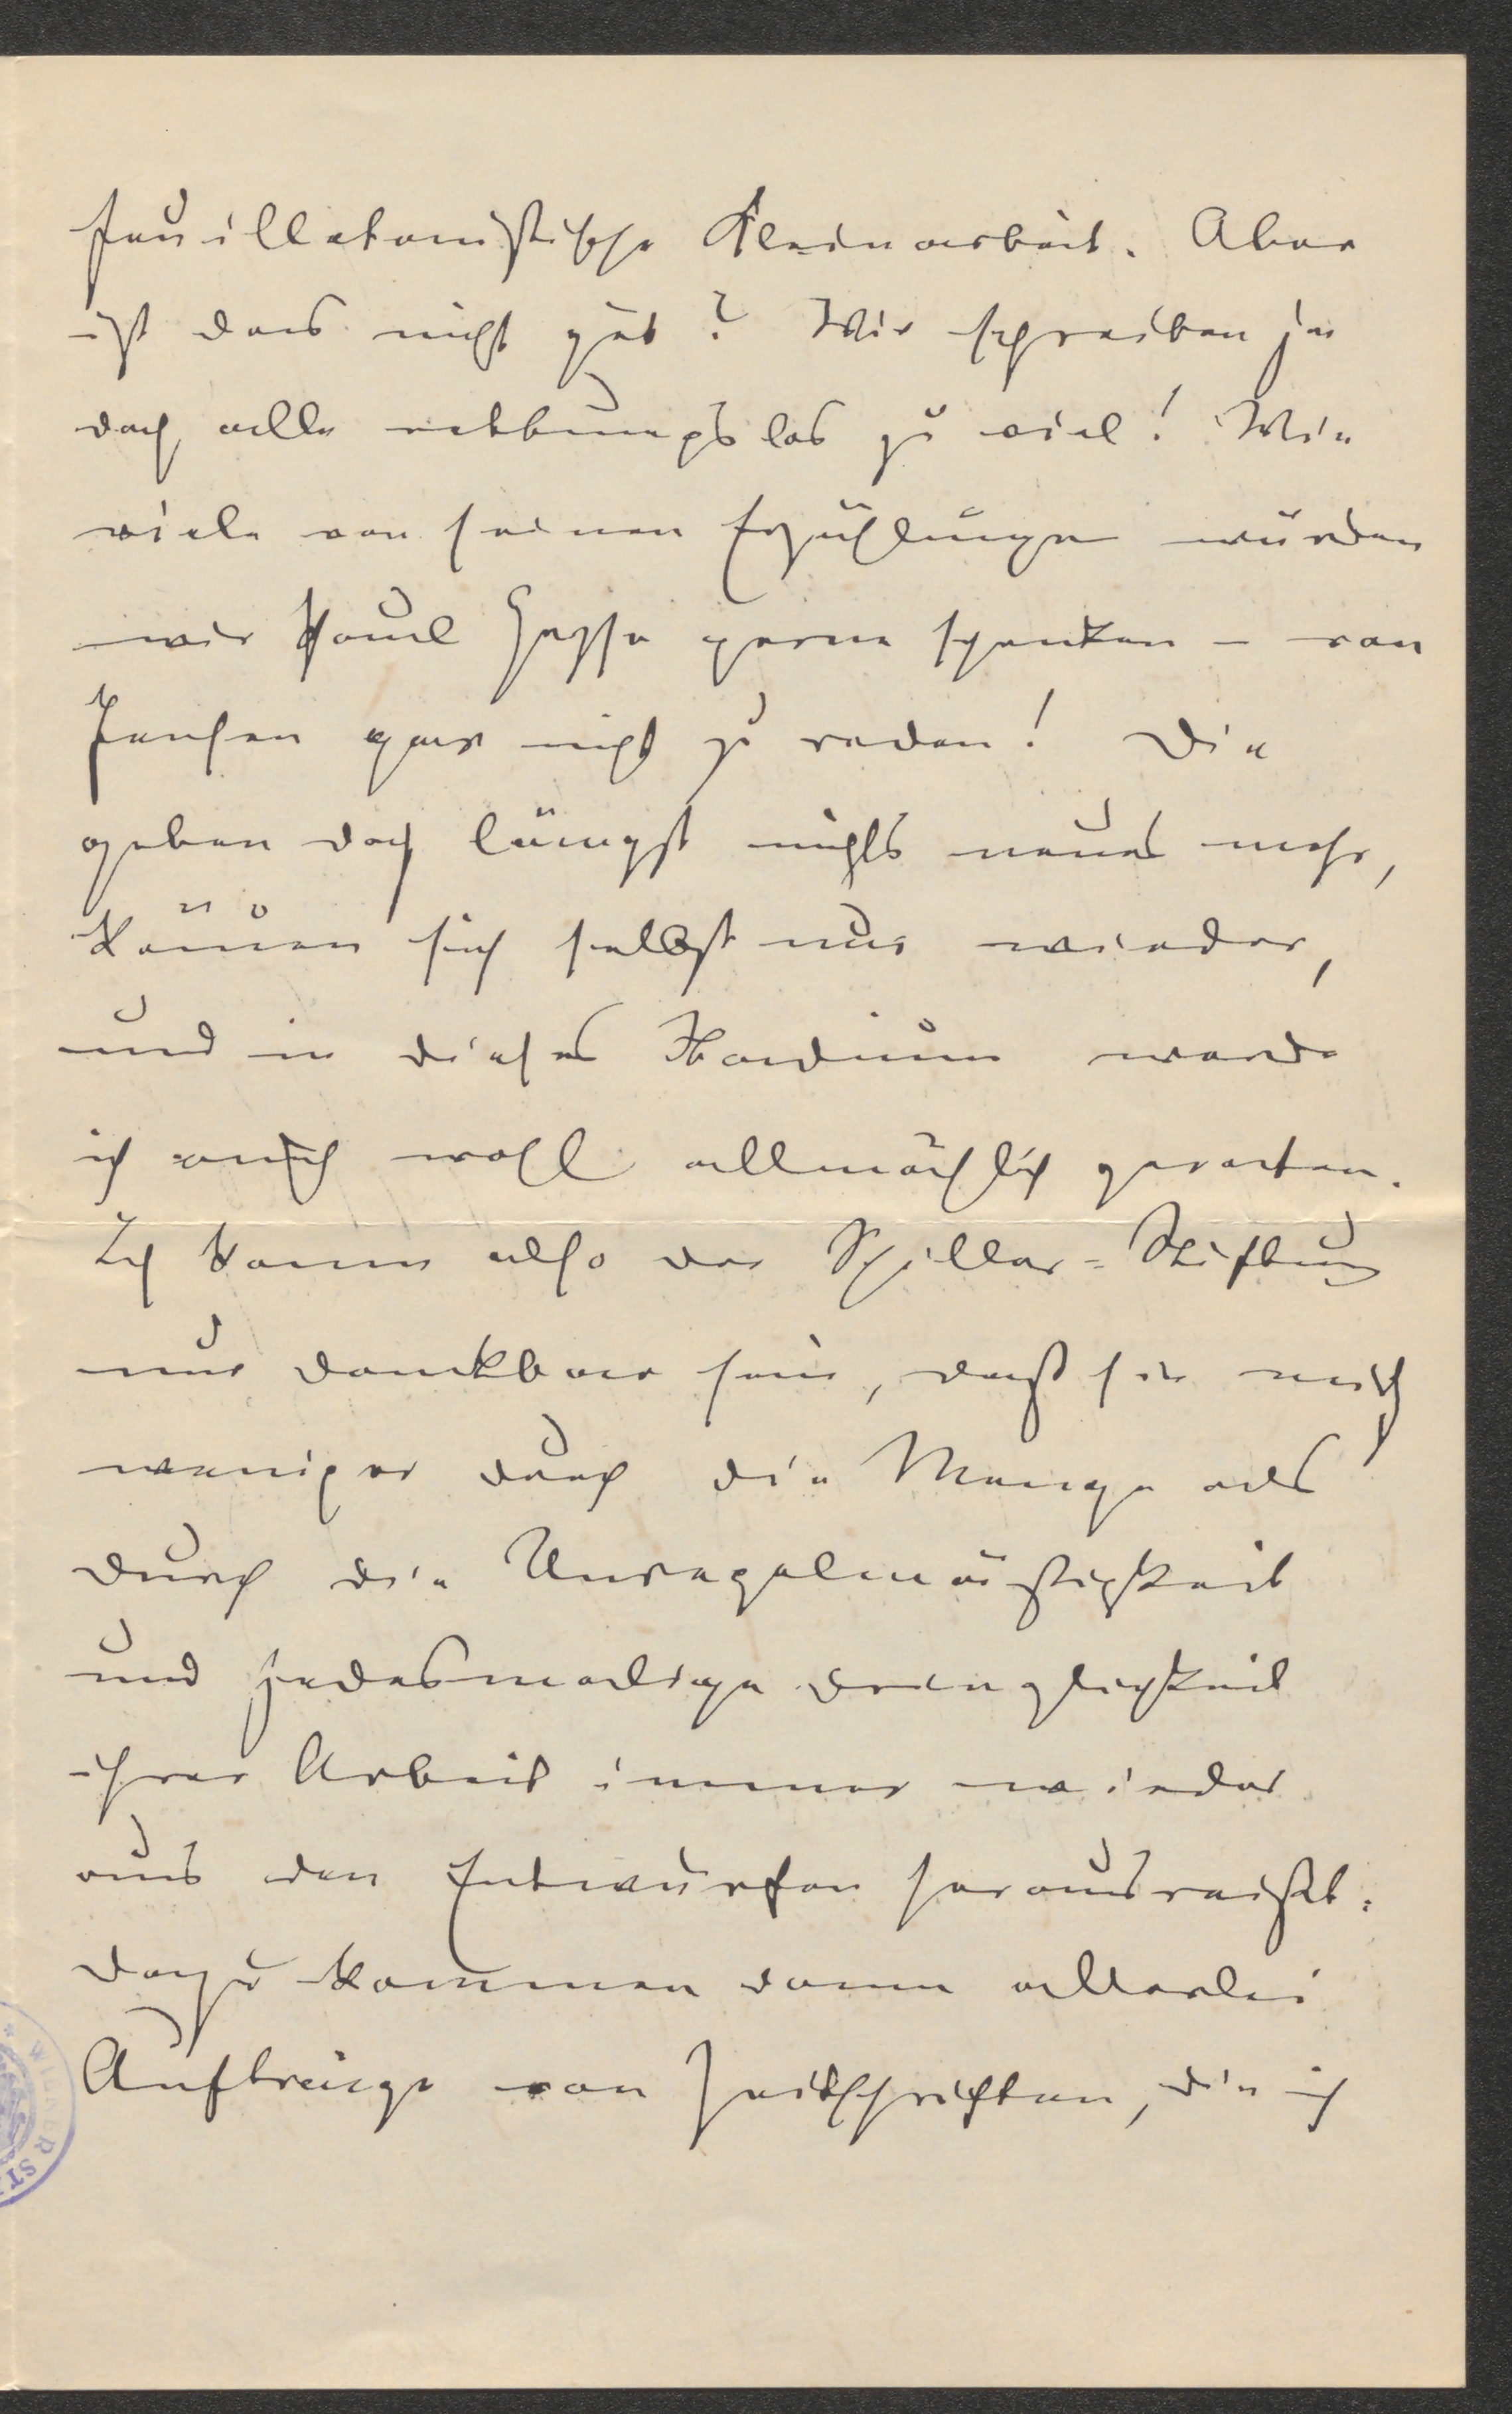 feuilletonistische Kleinarbeit. Aber
ist das nicht gut? Wir schreiben ja
doch alle rettungslos zu viel! Wie
viele von seinen Erzählungen würden
wir Paul Heyse gerne schenken – von
Jensen gar nicht zu reden! Die
geben doch längst nichts neues mehr,
käuen sich selbst nur wieder,
und in dieses Stadium werde
ich auch wohl allmächlich geraten.
Ich kann also der Schiller-Stiftung
nur dankbar sein, daß sie mich
weniger durch die Menge als
durch die Unregelmäßigkeit
und jedesmalige Dringlichkeit
ihrer Arbeit immer wieder
aus den Entwürfen herausreißt.
Dazu kommen dann allerlei
Aufträge von Zeitschriften, die ich